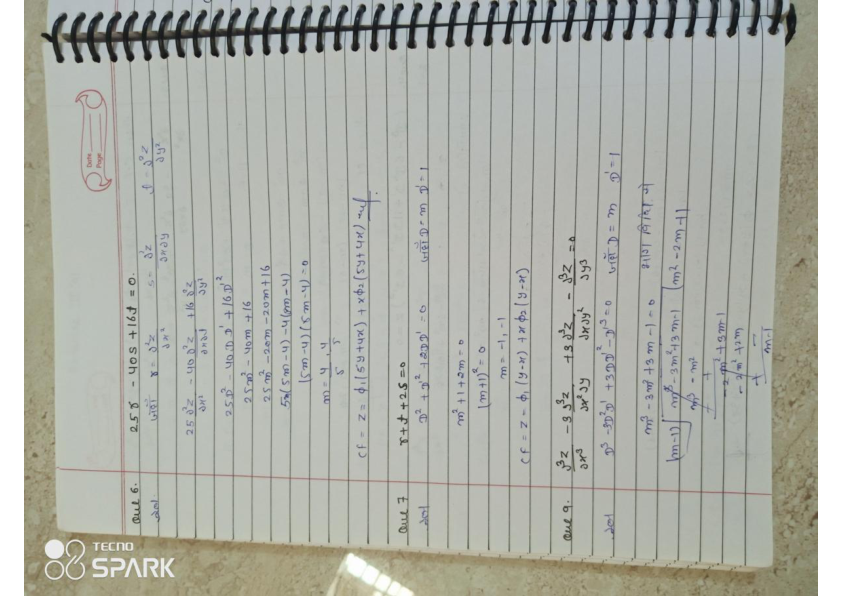 Date
Page
Que 6. 25r - 40s + 16t = 0.
हल जहाँ r = ∂²z/∂x² s = ∂²z/∂x∂y t = ∂²z/∂y²
25∂²z/∂x² - 40∂²z/∂x∂y + 16∂²z/∂y²
25D² - 40DD' + 16D'²
25m² - 40m + 16
25m² - 20m - 20m + 16
5m(5m-4) - 4(5m-4)
(5m-4)(5m-4) = 0
m = 4/5, 4/5
CF = z = ϕ₁(5y+4x) + xϕ₂(5y+4x)
Que 7 r + t + 2s = 0
हल D² + D'² + 2DD' = 0 जहाँ D = m D' = 1
m² + 1 + 2m = 0
(m+1)² = 0
m = -1, -1
CF = z = ϕ₁(y-x) + xϕ₂(y-x)
Que 9. ∂³z/∂x³ - 3∂³z/∂x²∂y + 3∂³z/∂x∂y² - ∂³z/∂y³ = 0
हल D³ - 3D²D' + 3DD'² - D'³ = 0 जहाँ D = m D' = 1
m³ - 3m² + 3m - 1 = 0 भाग विधि से
(m-1) m³ - 3m² + 3m - 1 (m² - 2m + 1
m³ - m²
- +
-2m² + 3m - 1
-2m² + 2m
+ -
m - 1
TECNO
SPARK